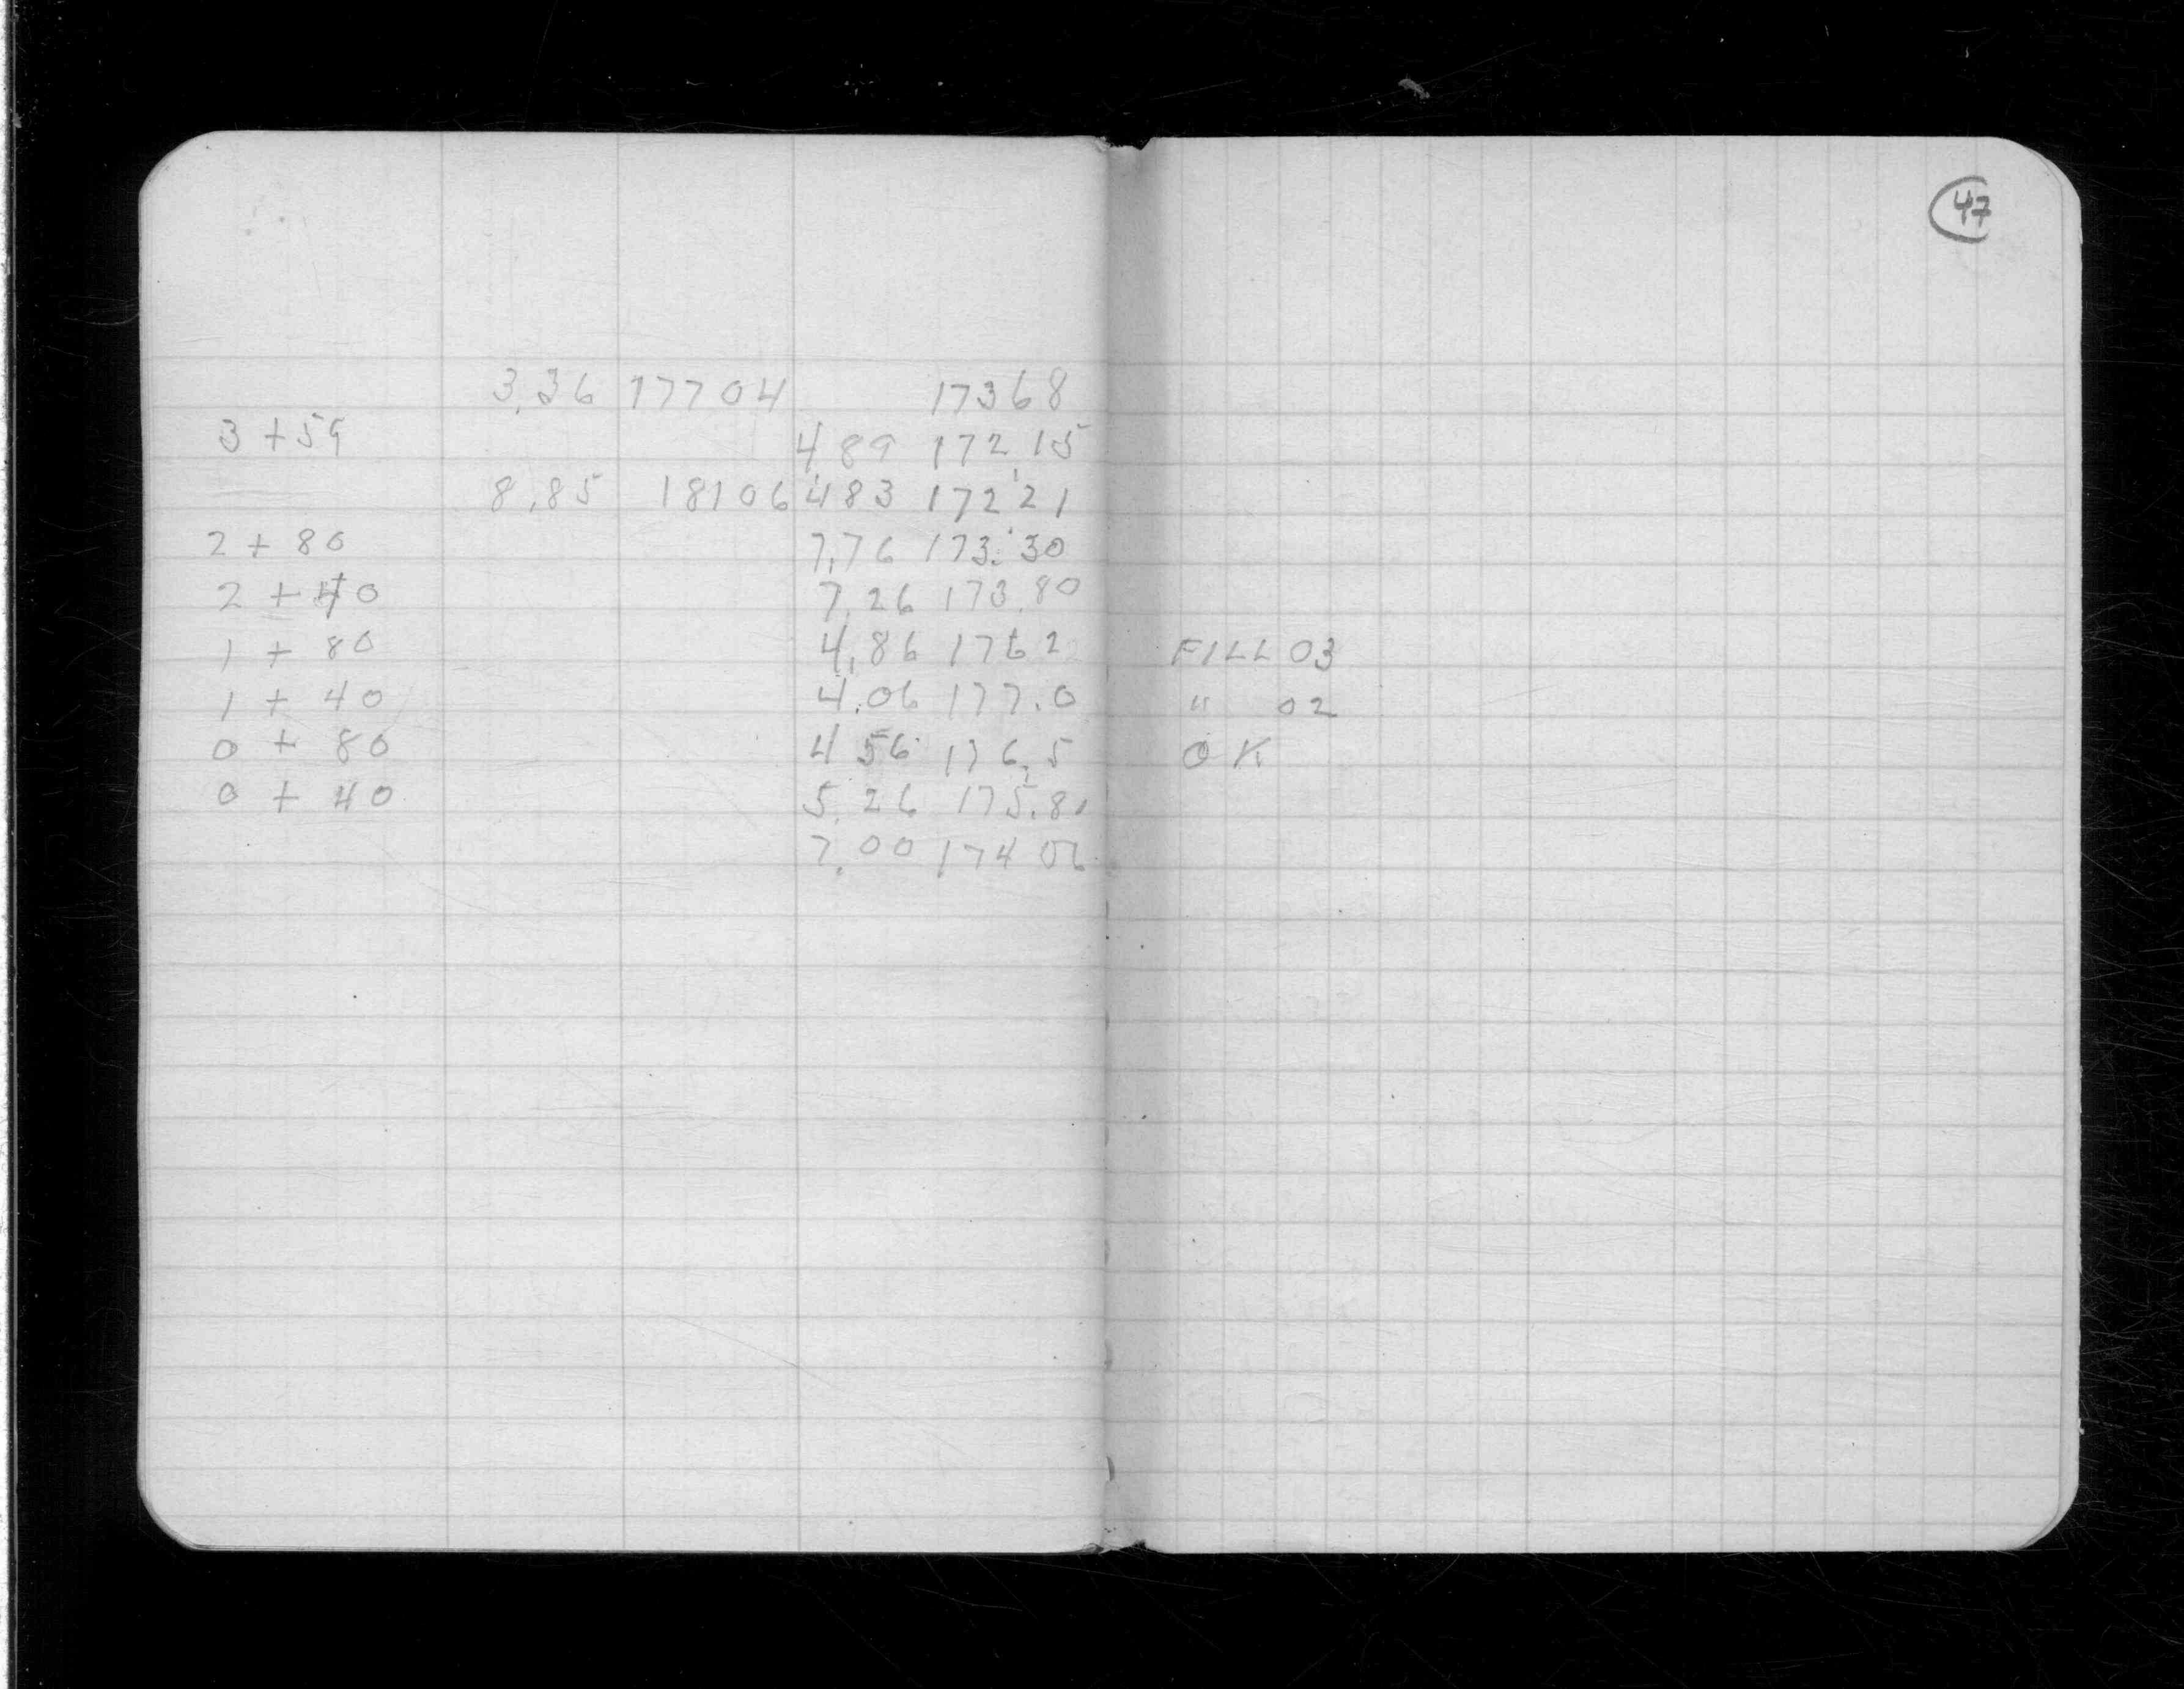 47
3.36 17704 17368
3+59 4 89 172 15
8.85 18106 4 83 172 21
2 + 80 7.76 173.30
2 + 40 7.26 173.80
1 + 80 4.86 176 2 FILL 03
1 + 40 4.06 177.0 " 02
0 + 80 4 56 176.5 OK
0 + 40 5.26 175.8
7.00 174 06